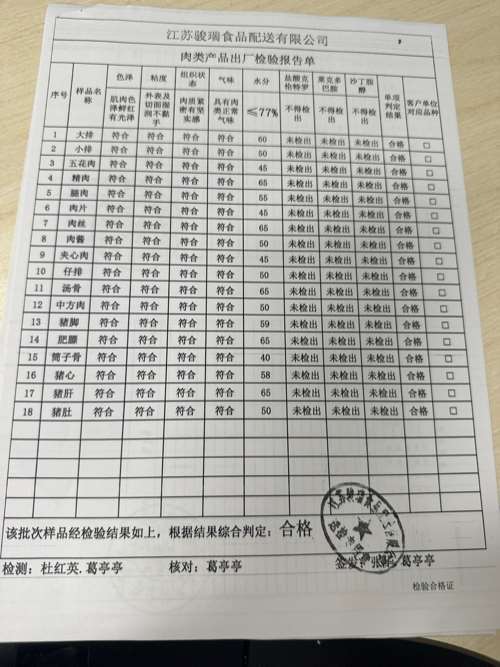 江苏骏瑞食品配送有限公司
肉类产品出厂检验报告单
序号 样品名称 色泽 粘度 组织状态 气味 水分 盐酸克伦特罗 莱克多巴胺 沙丁胺醇 单项判定结果 客户单位对应品种
肌肉色泽鲜红有光泽 外表及切面湿润不黏手 肉质紧密有坚实感 具有肉类正常气味 ≤77% 不得检出 不得检出 不得检出
1 大排 符合 符合 符合 符合 60 未检出 未检出 未检出 合格 □
2 小排 符合 符合 符合 符合 50 未检出 未检出 未检出 合格 □
3 五花肉 符合 符合 符合 符合 45 未检出 未检出 未检出 合格 □
4 精肉 符合 符合 符合 符合 65 未检出 未检出 未检出 合格 □
5 腿肉 符合 符合 符合 符合 55 未检出 未检出 未检出 合格 □
6 肉片 符合 符合 符合 符合 45 未检出 未检出 未检出 合格 □
7 肉丝 符合 符合 符合 符合 65 未检出 未检出 未检出 合格 □
8 肉酱 符合 符合 符合 符合 50 未检出 未检出 未检出 合格 □
9 夹心肉 符合 符合 符合 符合 45 未检出 未检出 未检出 合格 □
10 仔排 符合 符合 符合 符合 50 未检出 未检出 未检出 合格 □
11 汤骨 符合 符合 符合 符合 65 未检出 未检出 未检出 合格 □
12 中方肉 符合 符合 符合 符合 50 未检出 未检出 未检出 合格 □
13 猪脚 符合 符合 符合 符合 59 未检出 未检出 未检出 合格 □
14 肥膘 符合 符合 符合 符合 65 未检出 未检出 未检出 合格 □
15 筒子骨 符合 符合 符合 符合 40 未检出 未检出 未检出 合格 □
16 猪心 符合 符合 符合 符合 58 未检出 未检出 未检出 合格 □
17 猪肝 符合 符合 符合 符合 65 未检出 未检出 未检出 合格 □
18 猪肚 符合 符合 符合 符合 50 未检出 未检出 未检出 合格 □
该批次样品经检验结果如上，根据结果综合判定：合格
检测：杜红英.葛亭亭 核对：葛亭亭 葛亭亭
检验合格证